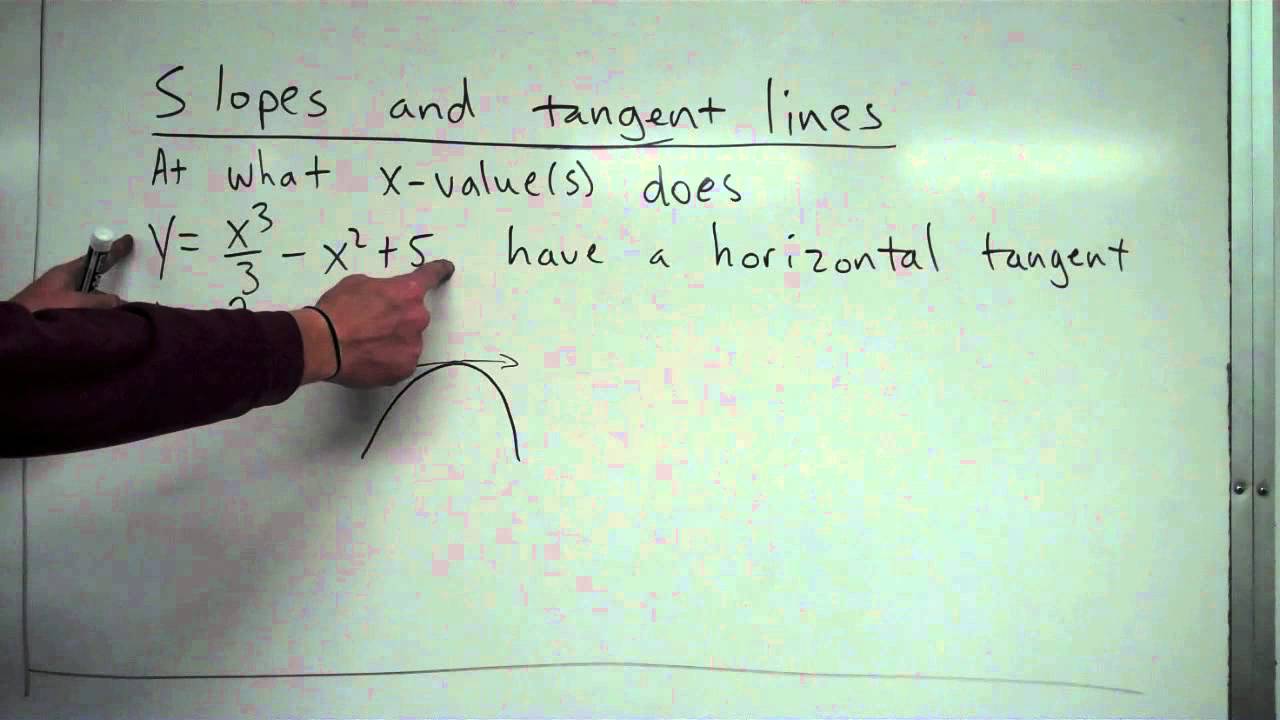 Slopes and tangent lines
At what x-value(s) does
y = x³/3 - x² + 5 have a horizontal tangent